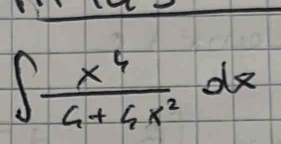 ∫ x⁴ / (4 + 4x²) dx